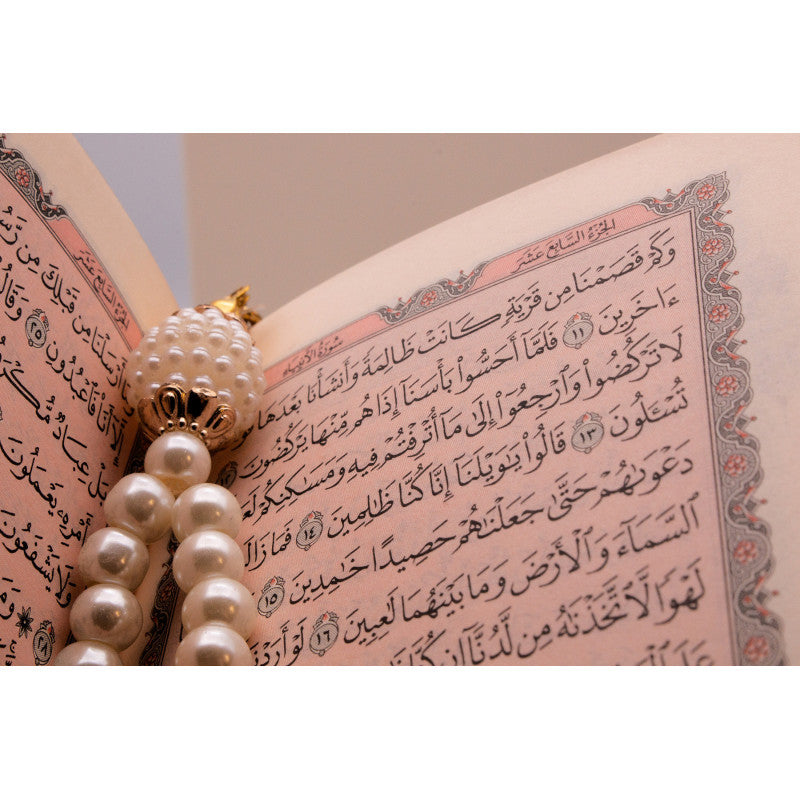 الجُزْءُ السَّابِعَ عَشَرَ
سُورَةُ الأَنبِيَاءِ
وَكَمْ قَصَمْنَا مِن قَرْيَةٍ كَانَتْ ظَالِمَةً وَأَنشَأْنَا بَعْدَهَا
ءَاخَرِينَ ١١ فَلَمَّآ أَحَسُّوا۟ بَأْسَنَآ إِذَا هُم مِّنْهَا يَرْكُضُونَ ١٢
لَا تَرْكُضُوا۟ وَٱرْجِعُوٓا۟ إِلَىٰ مَآ أُتْرِفْتُمْ فِيهِ وَمَسَٰكِنِكُمْ
تُسْـَٔلُونَ ١٣ قَالُوا۟ يَٰوَيْلَنَآ إِنَّا كُنَّا ظَٰلِمِينَ ١٤ فَمَا زَالَت
دَعْوَىٰهُمْ حَتَّىٰ جَعَلْنَٰهُمْ حَصِيدًا خَٰمِدِينَ ١٥
ٱلسَّمَآءَ وَٱلْأَرْضَ وَمَا بَيْنَهُمَا لَٰعِبِينَ ١٦ لَوْ أَرَدْنَآ
لَهْوًا لَّٱتَّخَذْنَٰهُ مِن لَّدُنَّآ إِن كُنَّا
الجُزْءُ السَّابِعَ عَشَرَ
أَرْسَلْنَا مِن قَبْلِكَ مِن رَّسُولٍ
أَنَا۠ فَٱعْبُدُونِ ٢٥ وَقَالُوا۟
بَلْ عِبَادٌ مُّكْرَمُونَ
بِأَمْرِهِۦ يَعْمَلُونَ
وَلَا يَشْفَعُونَ
٢٨